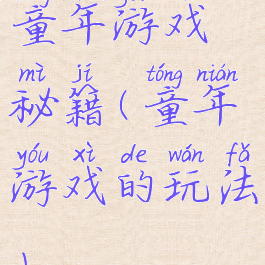 童年游戏
mì jí tóng nián
秘籍(童年
yóu xì de wán fǎ
游戏的玩法
)